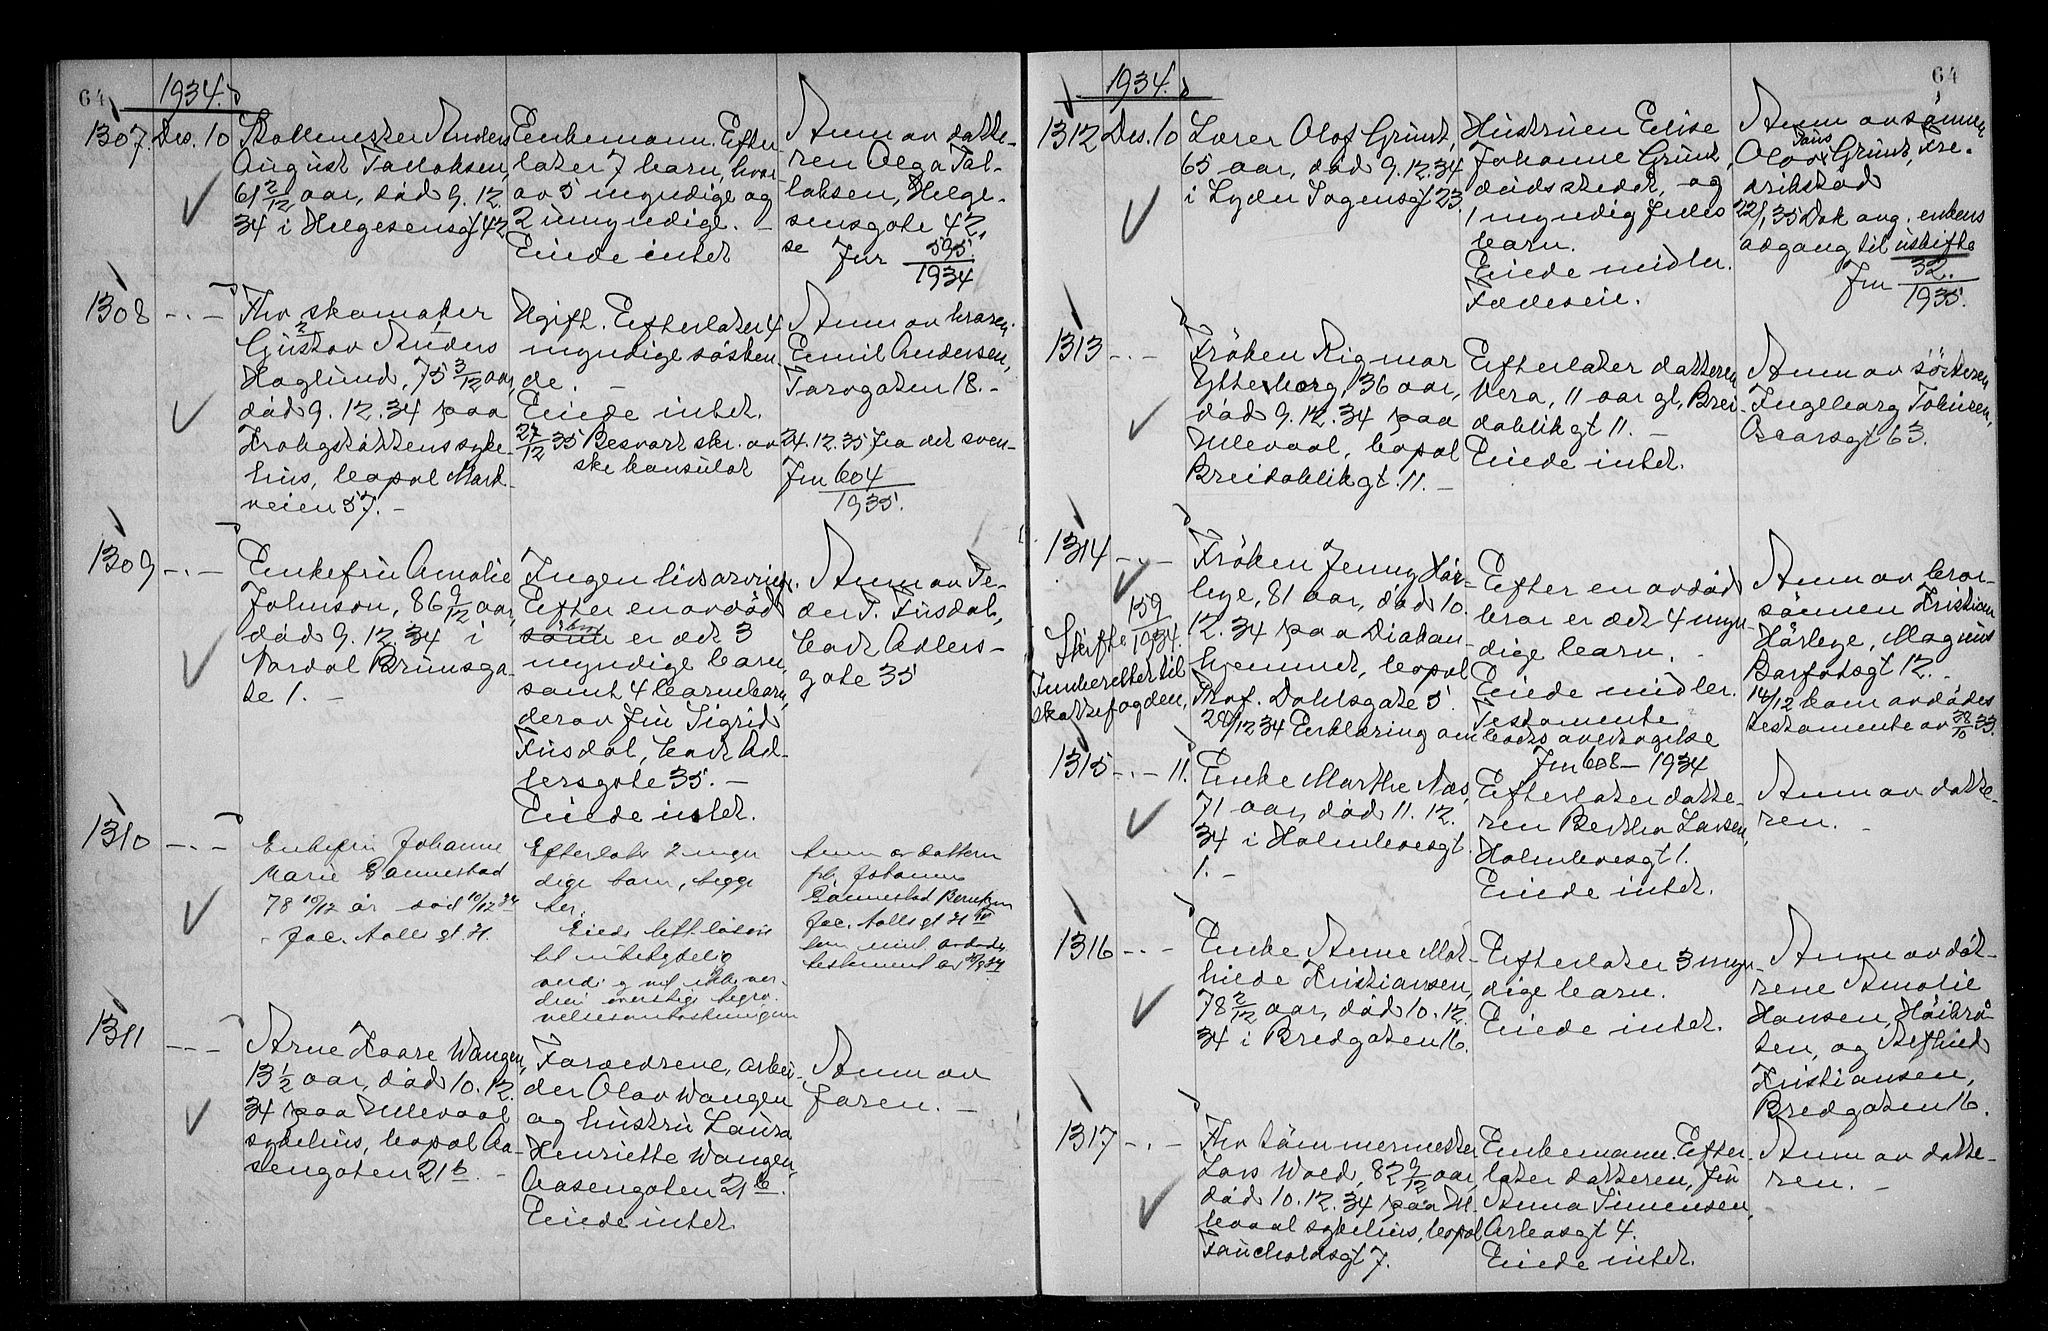 64
1934.
1307. Des. 10
Stallmester Anders
August Tallaksen,
61 2/12 aar, död 9. 12.
34 i Helgesensgt 42
Enkemann. Efter-
later 7 barn, hvor-
av 5 myndige og
2 umyndige. –
Eiede intet
Anm av datte-
ren Olga Tal-
laksen, Helge-
sensgate 42,
se Jnr 595/1934
1308 -.-
Fhv skomaker
Gustav Anders
Haglund, 75 3/12 aar,
död 9. 12. 34 paa
Krohgstöttens syke-
hus, bopæl Mark-
veien 57. –
Ugift. Efterlater 4
myndige sösken-
de. –
Eiede intet.
27/12 35 Besvart skr. av 24. 12. 35 fra det sven-
ske konsulat
Jnr 604/1935.
Anm av broren
Emil Andersen,
Torvgaten 18. –
1309 -.-
Enkefru Amalie
Johnson, 86 9/12 aar,
död 9. 12. 34 i
Nordal Brunsga-
te 1. –
Ingen livsarving.
Efter en avdöd
er det 3
myndige barn,
samt 4 barnebarn,
derav fru Sigrid
Fusdal, Cort Ad-
lersgate 35. –
Eiede intet.
Anm av Pe-
der T. Fusdal,
Cort Adlers-
gate 35
1310 -.-
Enkefru Johanne
Marie Gannestad
78 10/12 år död 10/12 34
Jac. Aalls gt.
Efterlater 2 myn
dige barn, begge
her.
Eiede litt løsøre
til ubetydelig
verdi og vel ikke ver-
dien overstige begra-
velsesomkostningene
Anm av datteren
frk. Johanne
Gannestad
Jac. Aalls gt
testament av
1311 -.-
Arne Kaare Wangen,
13 1/2 aar, död 10. 12.
34 paa Ullevaal
sykehus, bopæl Aa-
sengaten 21 b. –
Foreldrene, arbei-
der Olav Wangen
og hustru Laura
Henriette Wangen,
Aasengaten 21 b.
Eiede intet
Anm av
faren. –
64
1934.
1312 Des. 10
Lærer Olof Grunt,
65 aar, död 9. 12. 34
i Lyder Sagensgt 23.
Hustruen Elise
Johanne Grunt,
dödsstedet, og
1 myndig fælles
barn.
Eiede midler.
Fælleseie.
Anm av sönnen
Olav Grunt, Fre-
drikstad
22/1 35 Dok ang. enkens
adgang til uskifte
Jnr 32/1935.
1313 -.-
Fröken Rigmor
Ytteborg, 36 aar,
död 9. 12. 34 paa
Ullevaal, bopæl
Breidablikgt. 11. –
Efterlater datteren
Vera, 11 aar gl, Brei-
dablikgt 11. –
Eiede intet.
Anm av sösteren
Ingeborg Johnsen,
Oscarsgt 63.
1314 -.-
Skifte 159/1934.
Innberettet til
skattefogden,
Fröken Jenny Hör-
bye, 81 aar, död 10.
12. 34 paa Diakon-
hjemmet, bopæl
Prof. Dahlsgate 5.
Efter en avdöd
bror er det 4 myn-
dige barn. –
Eiede midler.
Testamente
28/12 34 Erklæring om boets overtagelse
Jnr 608 – 1934
Anm av bror-
sönnen Kristian
Hörbye, Magnus
Barfotsgt 12. –
14/12 kom avdödes
testamente av 28/10 33.
1315 -.- 11.
Enke Marthe Næs,
71 aar, död 11. 12.
34 i Holmboesgt
1. –
Efterlater datte-
ren Berthe Larsen,
Holmboesgt 1.
Eiede intet.
Anm av datte-
ren. –
1316 -.-
Enke Anne Mat-
hilde Kristiansen,
78 2/12 aar, död 10. 12.
34 i Bredgaten 16.
Efterlater 3 myn-
dige barn.
Eiede intet.
Anm av döt-
rene Amalie
Hansen, Höibrå-
ten, og
Kristiansen,
Bredgaten 16.
1317 -.-
Fhv tömmermester
Lars Wold, 82 9/12 aar,
död 10. 12. 34 paa Ul-
levaal sykehus, bopæl
Fauchaldsgt 7.
Enkemann. Efter-
later datteren, fru
Anna Simensen,
Arboesgt 4.
Eiede intet.
Anm av datte-
ren. –